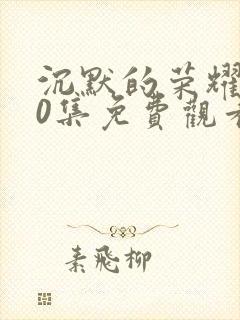 沉默的荣耀
0集免費觀看
素飛柳